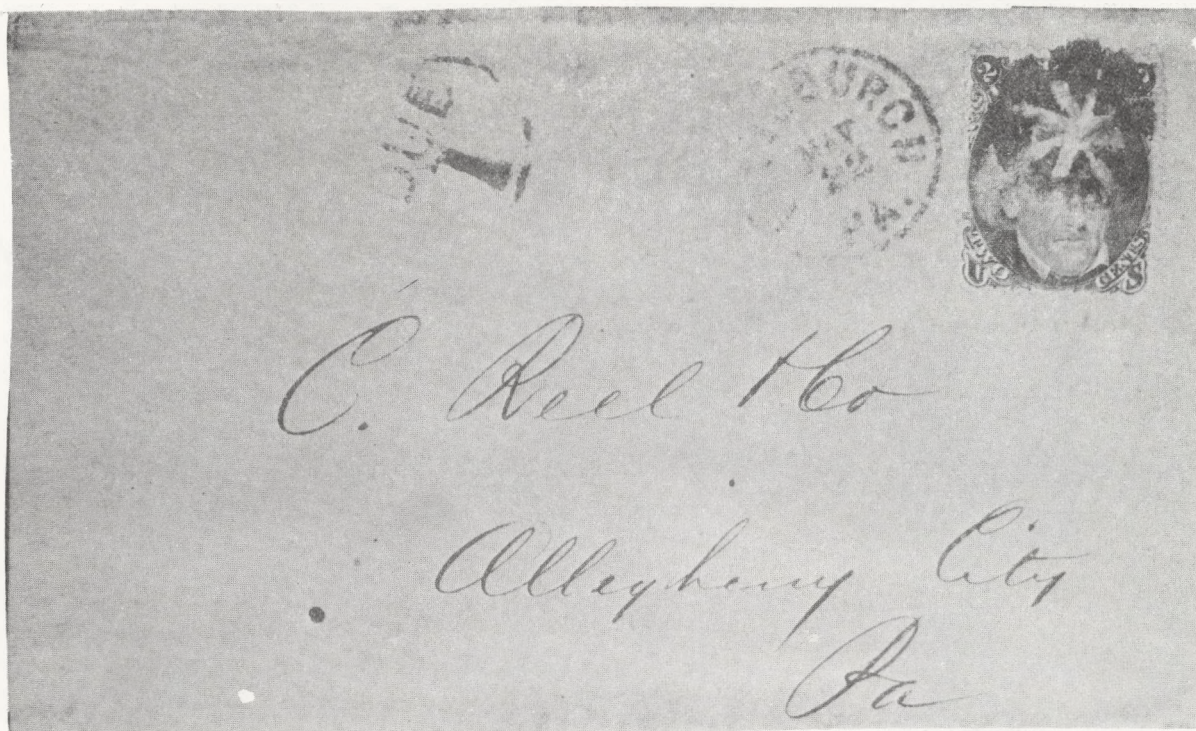 DUE 1
BURGH
PA.
2
TWO CENTS
C. Reel & Co
Allegheny City
Pa